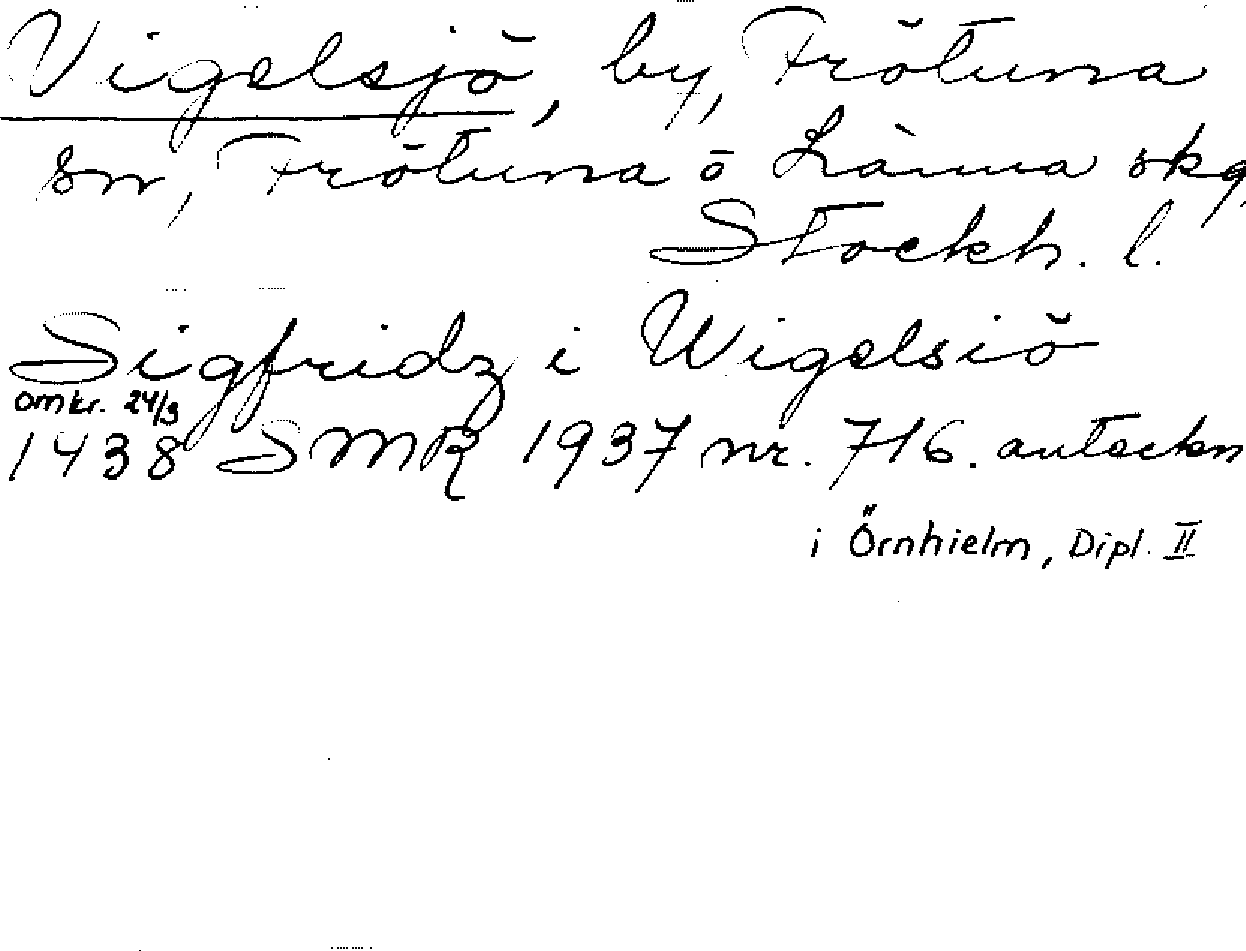 Vigelsjö, by, Frötuna
sn, Frötuna o Länna skg,
Stockh. l.
Sigfridz i Wigelsiö
omkr. 24/3
1438 SMR 1937 nr. 716. anteckn
i Örnhielm, Dipl. II